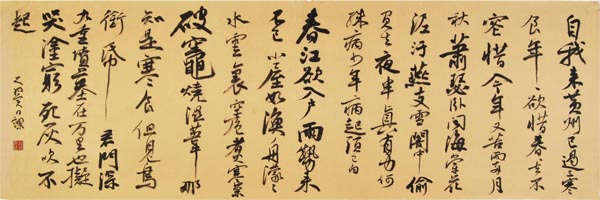 自我来黄州已過三寒
食年々欲惜春去不
容惜今年又苦雨兩月
秋蕭瑟卧聞海棠花
泥汙燕支雪闇中偷
負去夜半真有力何
殊病少年病起頭已白
春江欲入户雨勢来
不已小屋如漁舟濛々
水雲裏空庖煮寒菜
破竈燒濕葦那
知是寒食但見烏
銜帋君門深
九重墳墓在万里也擬
哭塗窮死灰吹不
起